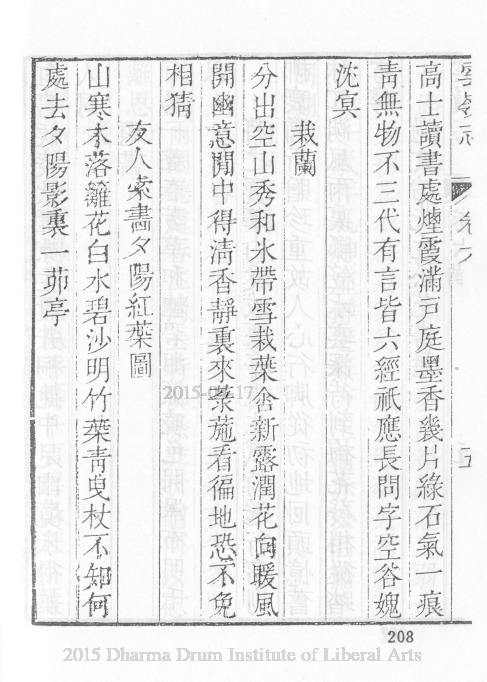 高士讀書處煙霞滿戶庭墨香幾片綠石氣一痕
靑無物不三代有言皆六經祇應長問字空谷媿
沈㝠
栽蘭
分出空山秀和氷帶雪栽葉含新露潤花向暖風
開幽意閒中得淸香靜裏來蒙茏看徧地恐不免
相猜
友人索畵夕陽紅葉圖
山寒木落籬花白水碧沙明竹葉靑曳杖不知何
處去夕陽影裏一茆亭
208
2015 Dharma Drum Institute of Liberal Arts